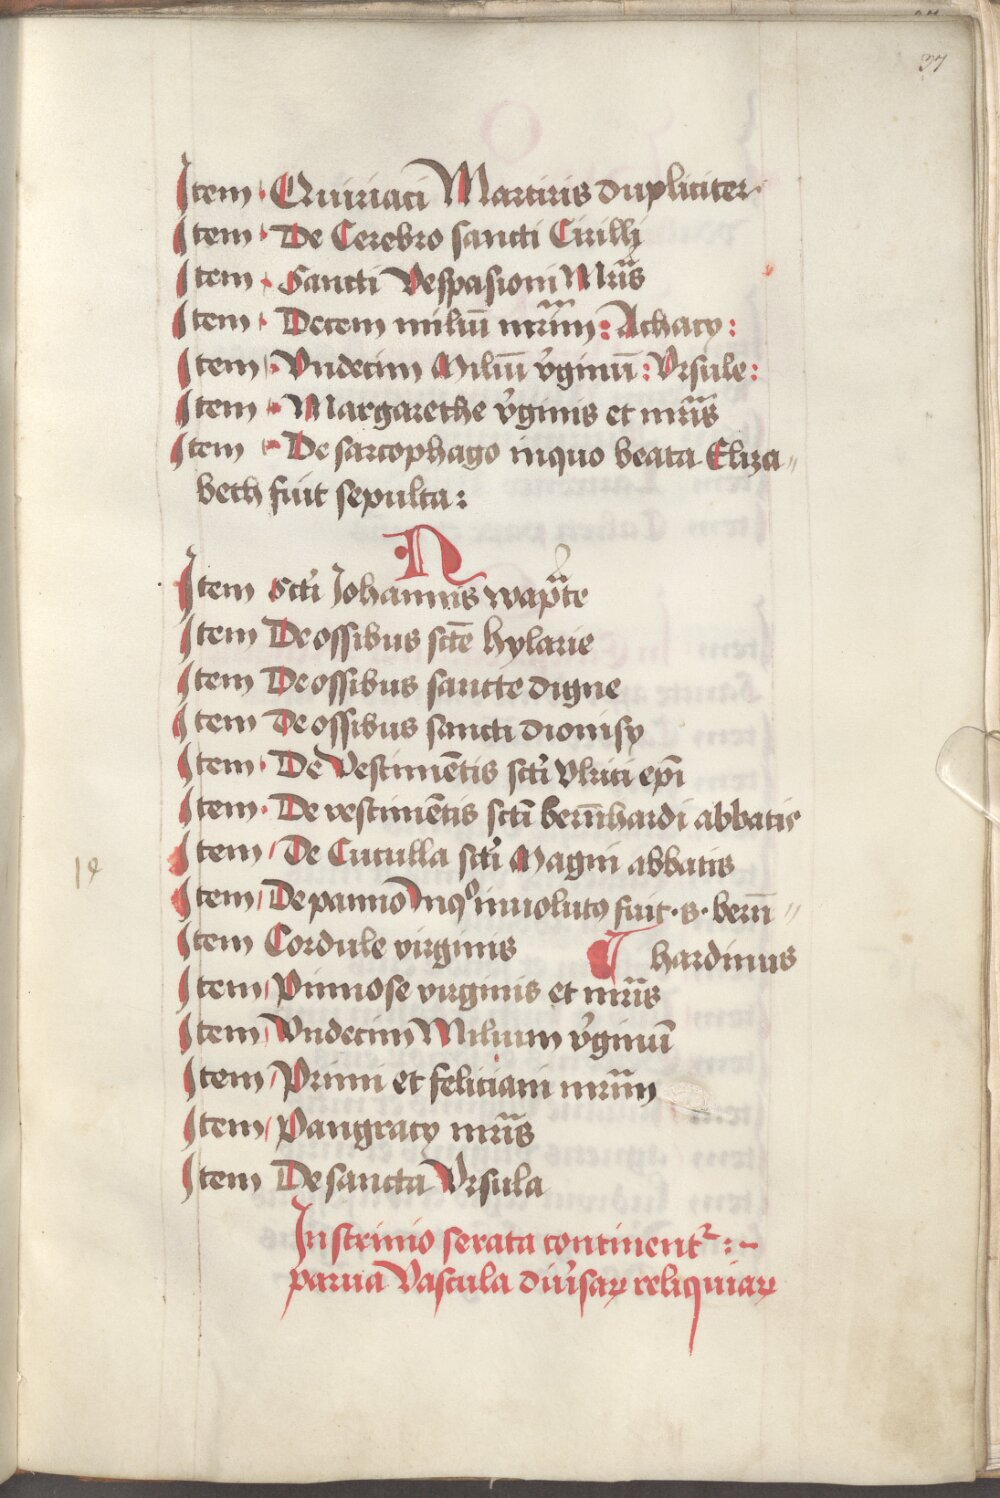 37
Item Quiriaci Martiris dupliciter
Item De Cerebro sancti Cirillj
Item Sancti Vespasioni Mr̄is
Item Decem miliū mr̄im : Achacy :
Item Vndecim Miliū v̓ginū : Vrsule :
Item Margarethe v̓ginis et mr̄is
Item De sarcophago inquo beata Eliza〃
beth fuit sepulta :
N
Item Sct̓i Johannis wapt̄e
Item De ossibus sctē hylarie
Item De ossibus sancte digne
Item De ossibus sancti dionisy
Item De Vestimētis sct̓i Vlrici ep̄i
Item De vestimētis sctī bern̄hardi abbatis
Item De Cuculla sct̓i Magni abbatis
Item De panno Inqo inuolutꝰ fuit · s · bern̄〃
Item Cordule virginis hardinus
Item Pinnose virginis et mr̄is
Item Vndecim Milium v̓ginū
Item Primi et feliciani mr̄im
Item Pangracy mr̄is
Item De sancta Vrsula
In scrinio serata continent᷑ : ~
parua Vascula diu̓saꝝ reliquiaꝝ